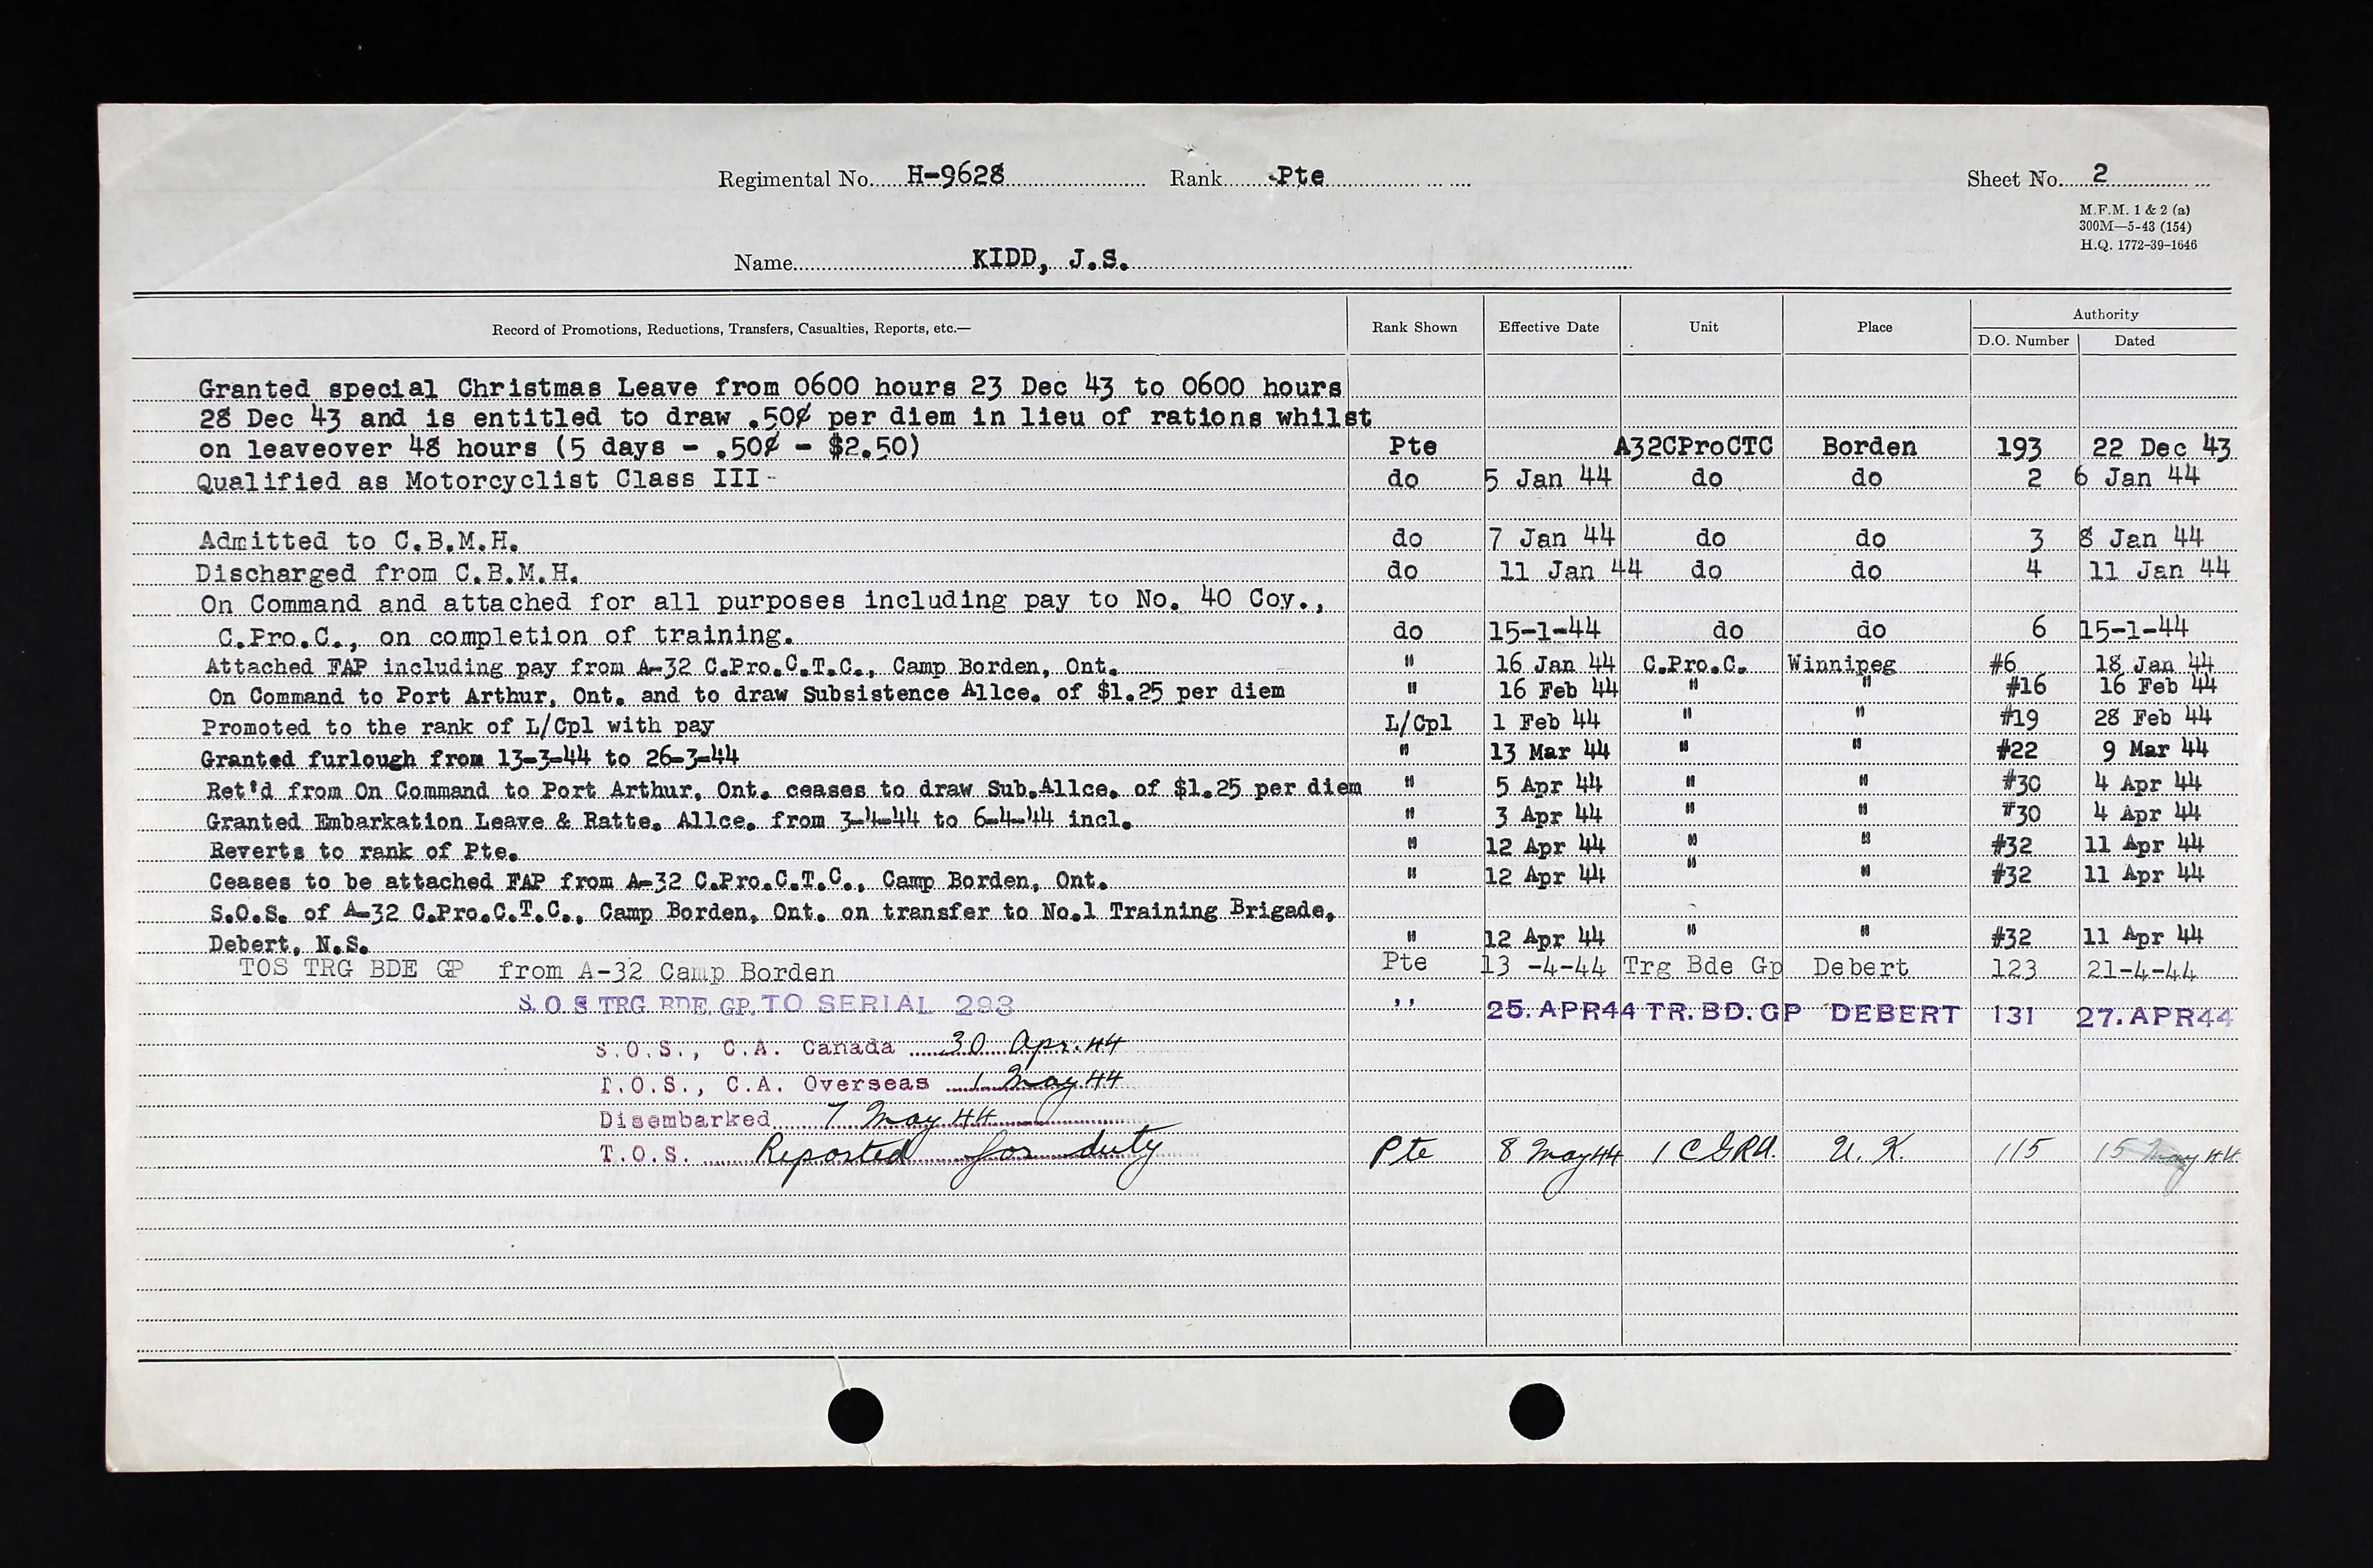 Regimental No. H-9628 Rank Pte Sheet No. 2
M.F.M. 1 & 2 (a)
300M—5-43 (154)
H.Q. 1772-39-1646
Name KIDD, J.S.
Record of Promotions, Reductions, Transfers, Casualties, Reports, etc.— Rank Shown Effective Date Unit Place Authority
D.O. Number Dated
Granted special Christmas Leave from 0600 hours 23 Dec 43 to 0600 hours
28 Dec 43 and is entitled to draw .50¢ per diem in lieu of rations whilst
on leaveover 48 hours (5 days - .50¢ - $2.50) Pte A32CProCTC Borden 193 22 Dec 43
Qualified as Motorcyclist Class III- do 5 Jan 44 do do 2 6 Jan 44
Admitted to C.B.M.H. do 7 Jan 44 do do 3 8 Jan 44
Discharged from C.B.M.H. do 11 Jan 44 do do 4 11 Jan 44
On Command and attached for all purposes including pay to No. 40 Coy.,
C.Pro.C., on completion of training. do 15-1-44 do do 6 15-1-44
Attached FAP including pay from A-32 C.Pro.C.T.C., Camp Borden, Ont. " 16 Jan 44 C.Pro.C. Winnipeg #6 18 Jan 44
On Command to Port Arthur, Ont. and to draw Subsistence Allce. of $1.25 per diem " 16 Feb 44 " " #16 16 Feb 44
Promoted to the rank of L/Cpl with pay L/Cpl 1 Feb 44 " " #19 28 Feb 44
Granted furlough from 13-3-44 to 26-3-44 " 13 Mar 44 " " #22 9 Mar 44
Ret'd from On Command to Port Arthur, Ont. ceases to draw Sub.Allce. of $1.25 per diem " 5 Apr 44 " " #30 4 Apr 44
Granted Embarkation Leave & Ratte. Allce. from 3-4-44 to 6-4-44 incl. " 3 Apr 44 " " #30 4 Apr 44
Reverts to rank of Pte. " 12 Apr 44 " " #32 11 Apr 44
Ceases to be attached FAP from A-32 C.Pro.C.T.C., Camp Borden, Ont. " 12 Apr 44 " " #32 11 Apr 44
S.O.S. of A-32 C.Pro.C.T.C., Camp Borden, Ont. on transfer to No.1 Training Brigade,
Debert, N.S. " 12 Apr 44 " " #32 11 Apr 44
TOS TRG BDE GP from A-32 Camp Borden Pte 13 -4-44 Trg Bde Gp Debert 123 21-4-44
S.O.S TRG BDE. GP. TO SERIAL 293 '' 25. APR44 TR. BD. GP DEBERT 131 27. APR44
S.O.S., C.A. Canada 30 Apr. 44
T.O.S., C.A. Overseas 1 May 44
Disembarked 7 May 44
T.O.S. Reported for duty Pte 8 May 44 1 CGRU. U.K. 115 15 May 44